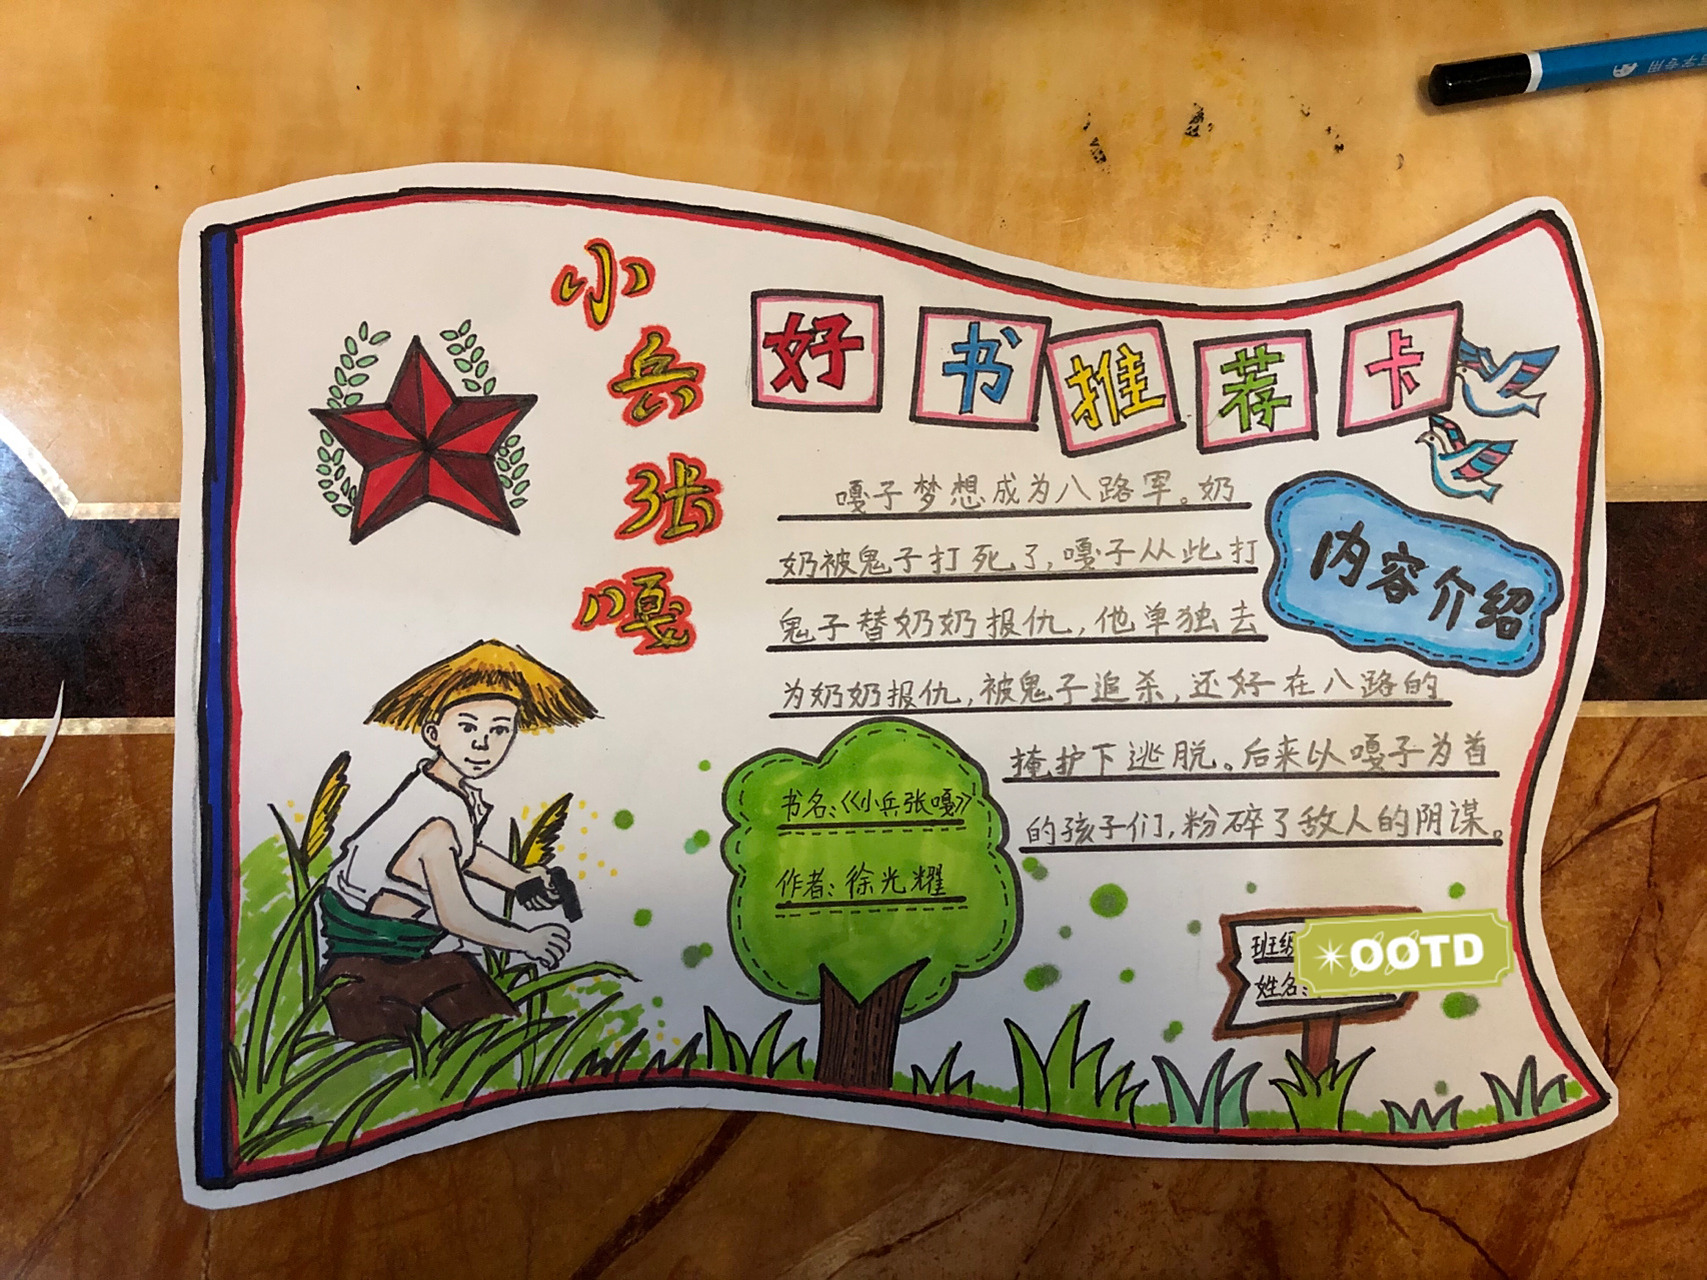 小兵张嘎
好书推荐卡
嘎子梦想成为八路军。奶
奶被鬼子打死了,嘎子从此打
鬼子替奶奶报仇,他单独去
为奶奶报仇,被鬼子追杀,还好在八路的
掩护下逃脱。后来以嘎子为首
的孩子们,粉碎了敌人的阴谋。
内容介绍
书名:《小兵张嘎》
作者:徐光耀
班级
姓名:
OOTD